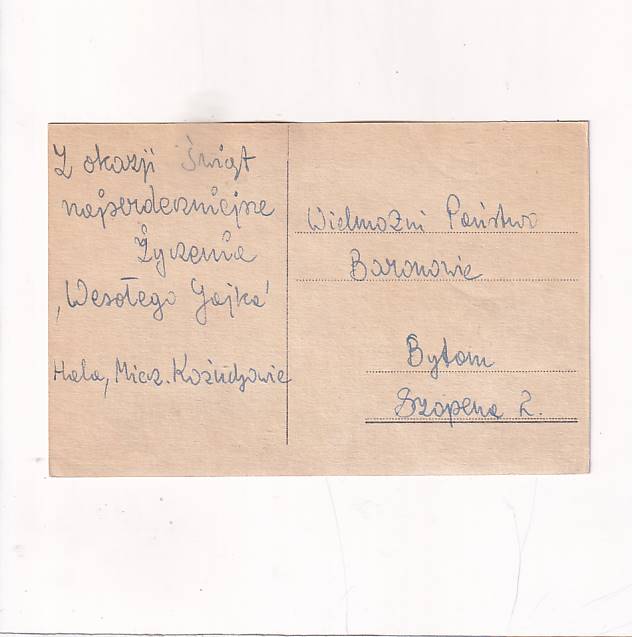 Z okazji Świąt
najserdeczniejsze
Życzenia
„Wesołego Jajka"
Hala, Miecz.
Wielmożni Państwo
Baronowie
Bytom
Szopena 2.